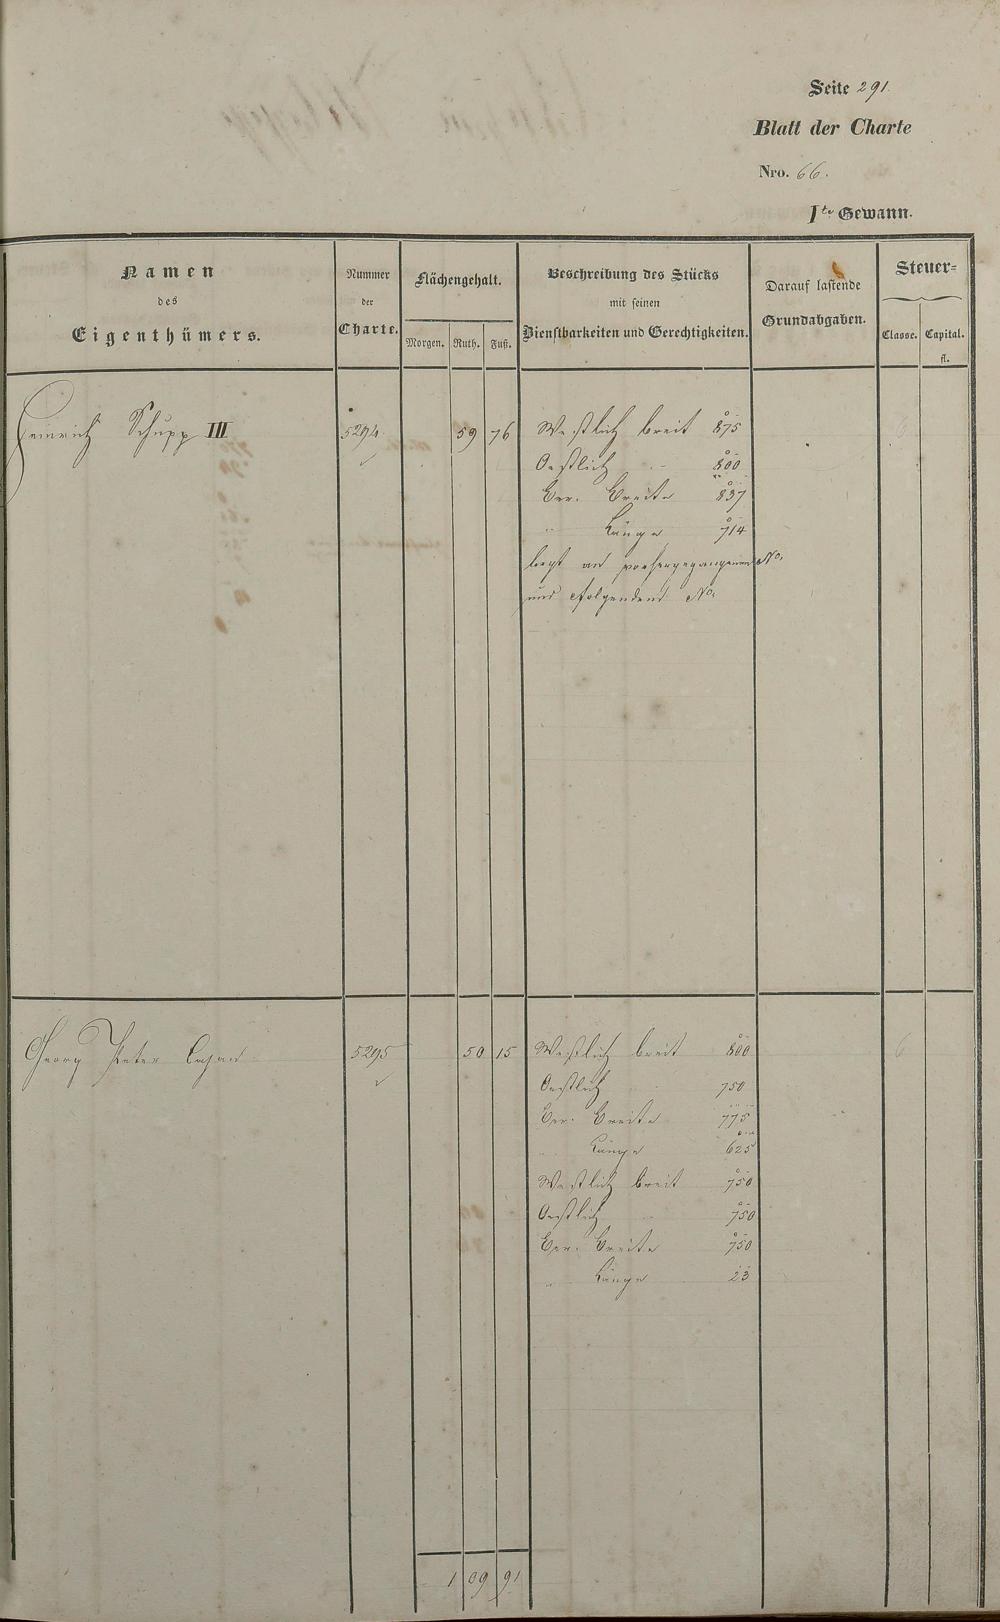 Seite 291.
Blatt der Charte
Nro. 66.
1te Gewann.
Namen
des
Eigenthümers.
Nummer
der
Charte.
Flächengehalt.
Morgen. Ruth. Fuß.
Beschreibung des Stücks
mit seinen
Dienstbarkeiten und Gerechtigkeiten.
Darauf lastende
Grundabgaben.
Steuer-
Classe. Capital.
fl.
Heinrich Schupp III 5294. 59 76 Westlich breit 875
Oestlich " 800
Ver. Breite 837
" Länge 714
liegt an vorhergegangenen No.
und folgendem No.
Georg Peter 5295 50 15 Westlich breit 800
Oestlich 750
Ver. Breite 775
" Länge 625
Westlich breit 750
Oestlich 750
Ver. Breite 750
" Länge 23
1 09 91